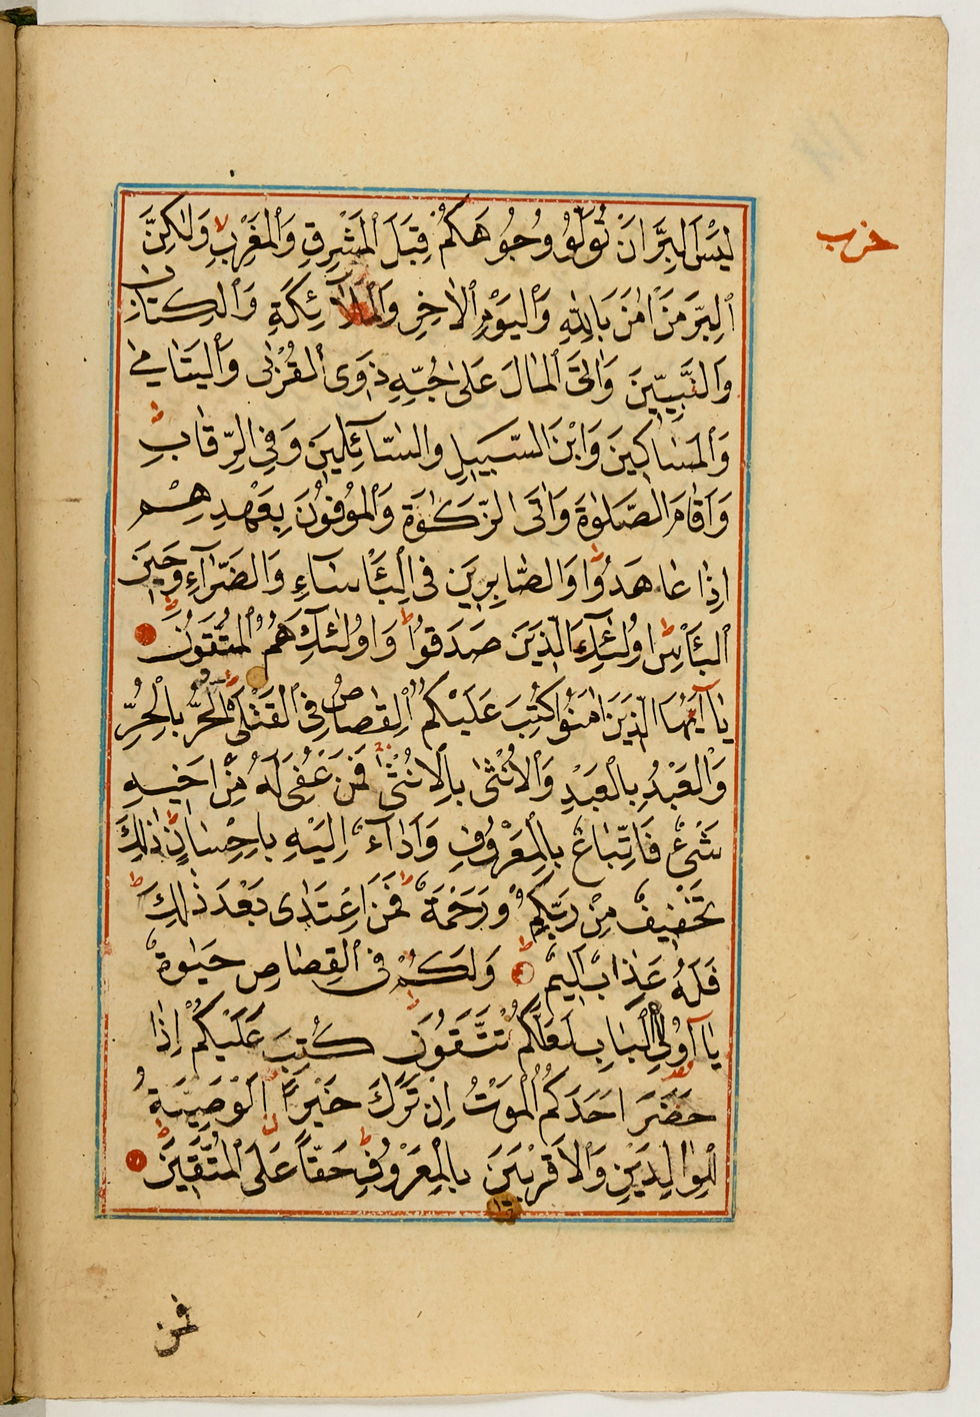 حزب
لَيْسَ الْبِرَّ اَنْ تُوَلُّوْا وُجُوْهَكُمْ قِبَلَ الْمَشْرِقِ وَالْمَغْرِبِ وَلٰكِنَّ
الْبِرَّ مَنْ اٰمَنَ بِاللّٰهِ وَالْيَوْمِ الْاٰخِرِ وَالْمَلَاۤئِكَةِ وَالْكِتَابِ
وَالنَّبِيّٖنَ وَاٰتَى الْمَالَ عَلٰى حُبِّهٖ ذَوِى الْقُرْبٰى وَالْيَتَامٰى
وَالْمَسَاكِيْنَ وَابْنَ السَّبِيْلِ وَالسَّاۤئِلِيْنَ وَفِى الرِّقَابِ ط
وَاَقَامَ الصَّلٰوةَ وَاٰتَى الزَّكٰوةَ وَالْمُوْفُوْنَ بِعَهْدِهِمْ
اِذَا عَاهَدُوْا وَالصَّابِرِيْنَ فِى الْبَأْسَاۤءِ وَالضَّرَّاۤءِ وَحِيْنَ
الْبَأْسِ ط اُولٰئِكَ الَّذِيْنَ صَدَقُوْا ط وَاُولٰئِكَ هُمُ الْمُتَّقُوْنَ
يَاۤ اَيُّهَا الَّذِيْنَ اٰمَنُوْا كُتِبَ عَلَيْكُمُ الْقِصَاصُ فِى الْقَتْلٰى ط اَلْحُرُّ بِالْحُرِّ
وَالْعَبْدُ بِالْعَبْدِ وَالْاُنْثٰى بِالْاُنْثٰى فَمَنْ عُفِىَ لَهُ مِنْ اَخِيْهِ
شَىْءٌ فَاتِّبَاعٌ بِالْمَعْرُوْفِ وَاَدَاۤءٌ اِلَيْهِ بِاِحْسَانٍ ط ذٰلِكَ
تَخْفِيْفٌ مِنْ رَبِّكُمْ وَرَحْمَةٌ ط فَمَنِ اعْتَدٰى بَعْدَ ذٰلِكَ ط
فَلَهُ عَذَابٌ اَلِيْمٌ ط وَلَكُمْ فِى الْقِصَاصِ حَيٰوةٌ
يَاۤ اُولِى الْاَلْبَابِ لَعَلَّكُمْ تَتَّقُوْنَ ط كُتِبَ عَلَيْكُمْ اِذَا
حَضَرَ اَحَدَكُمُ الْمَوْتُ اِنْ تَرَكَ خَيْرًا اَلْوَصِيَّةُ
لِلْوَالِدَيْنِ وَالْاَقْرَبِيْنَ بِالْمَعْرُوْفِ ط حَقًّا عَلَى الْمُتَّقِيْنَ ط
فمن